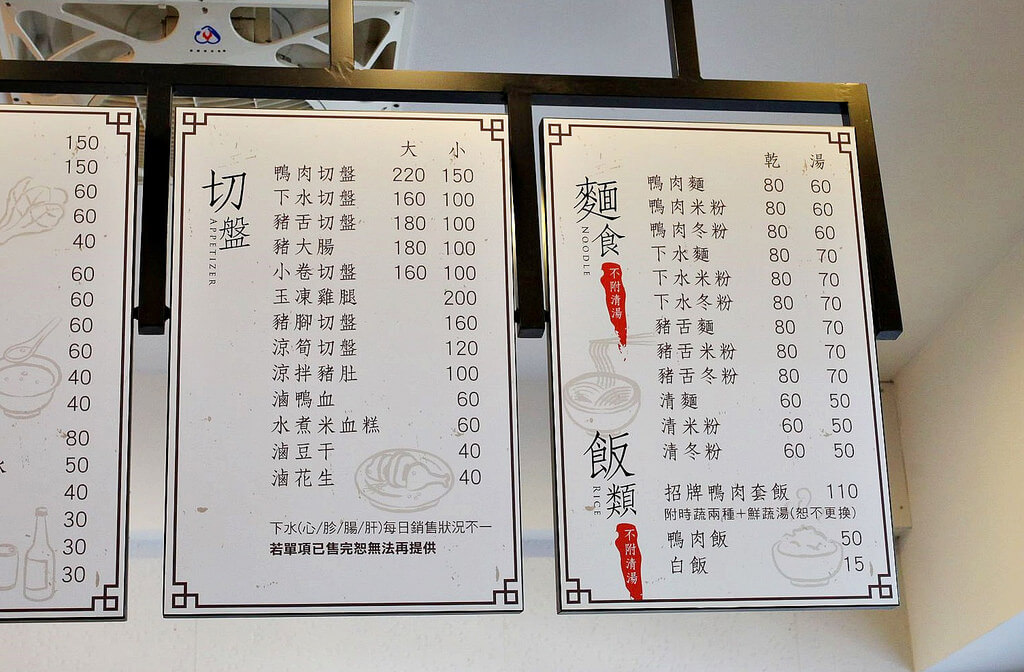 150
150
60
60
40
60
60
60
60
40
40
80
50
40
30
30
30
切盤
APPETIZER
大 小
鴨肉切盤 220 150
下水切盤 160 100
豬舌切盤 180 100
豬大腸 180 100
小卷切盤 160 100
玉凍雞腿 200
豬腳切盤 160
涼筍切盤 120
涼拌豬肚 100
滷鴨血 60
水煮米血糕 60
滷豆干 40
滷花生 40
下水(心/胗/腸/肝)每日銷售狀況不一
若單項已售完恕無法再提供
麵食
NOODLE
不附清湯
乾 湯
鴨肉麵 80 60
鴨肉米粉 80 60
鴨肉冬粉 80 60
下水麵 80 70
下水米粉 80 70
下水冬粉 80 70
豬舌麵 80 70
豬舌米粉 80 70
豬舌冬粉 80 70
清麵 60 50
清米粉 60 50
清冬粉 60 50
飯類
RICE
不附清湯
招牌鴨肉套飯 110
附時蔬兩種+鮮蔬湯(恕不更換)
鴨肉飯 50
白飯 15